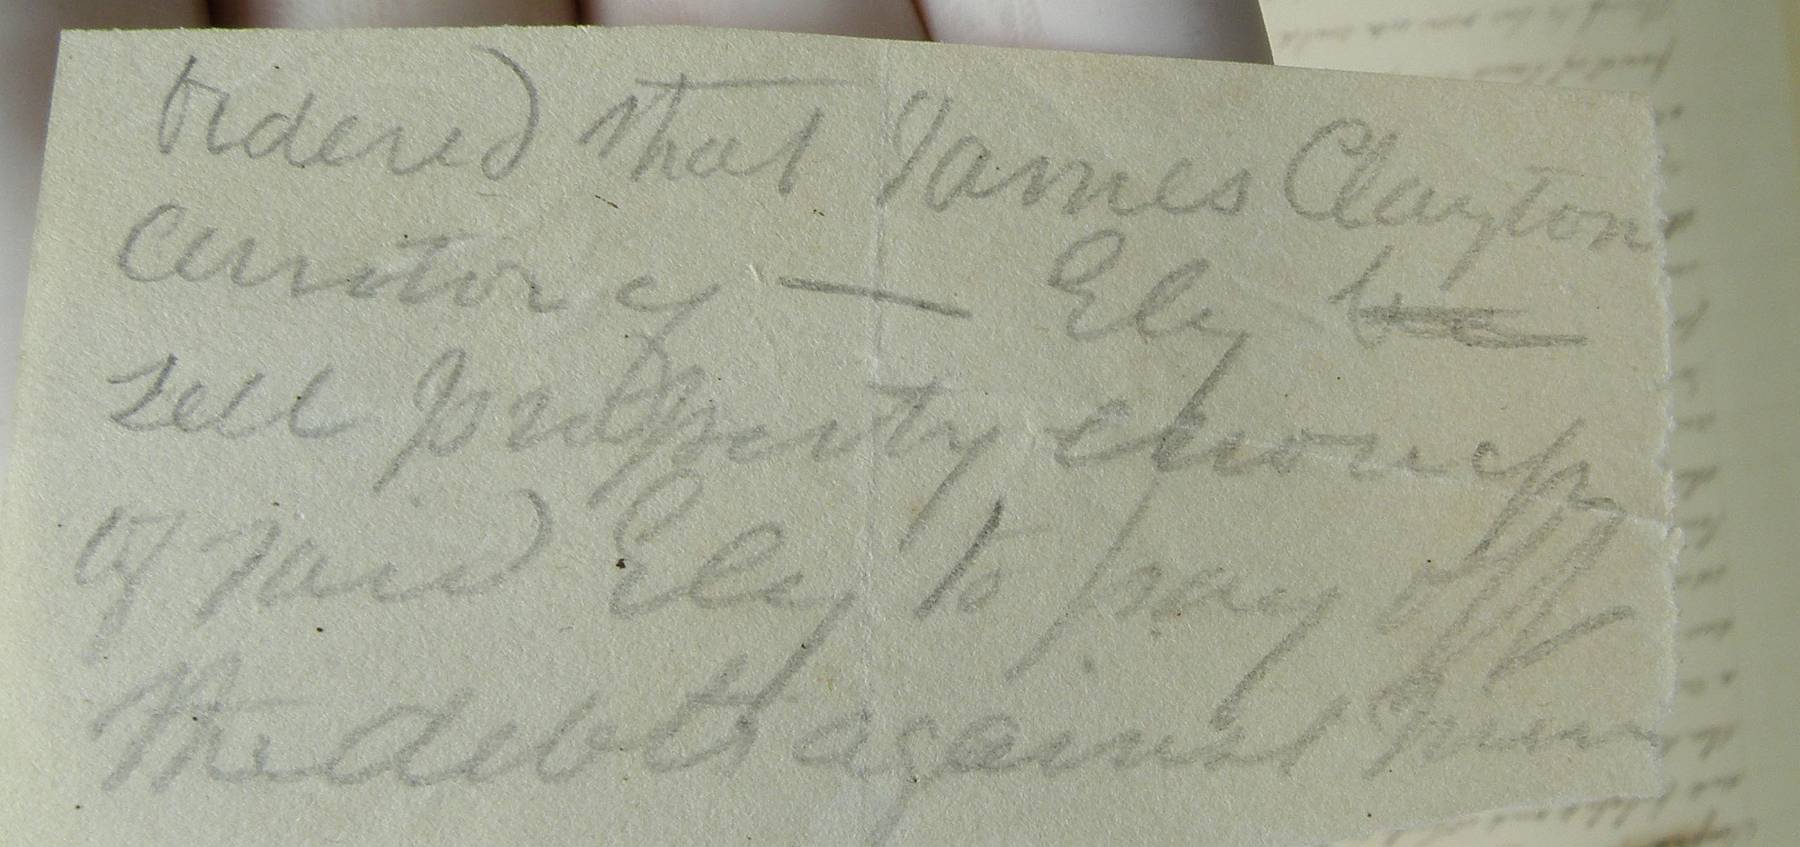 Ordered that James Clayton
curator of — Ely
sell property enough
of said Ely to pay off
the debts against him